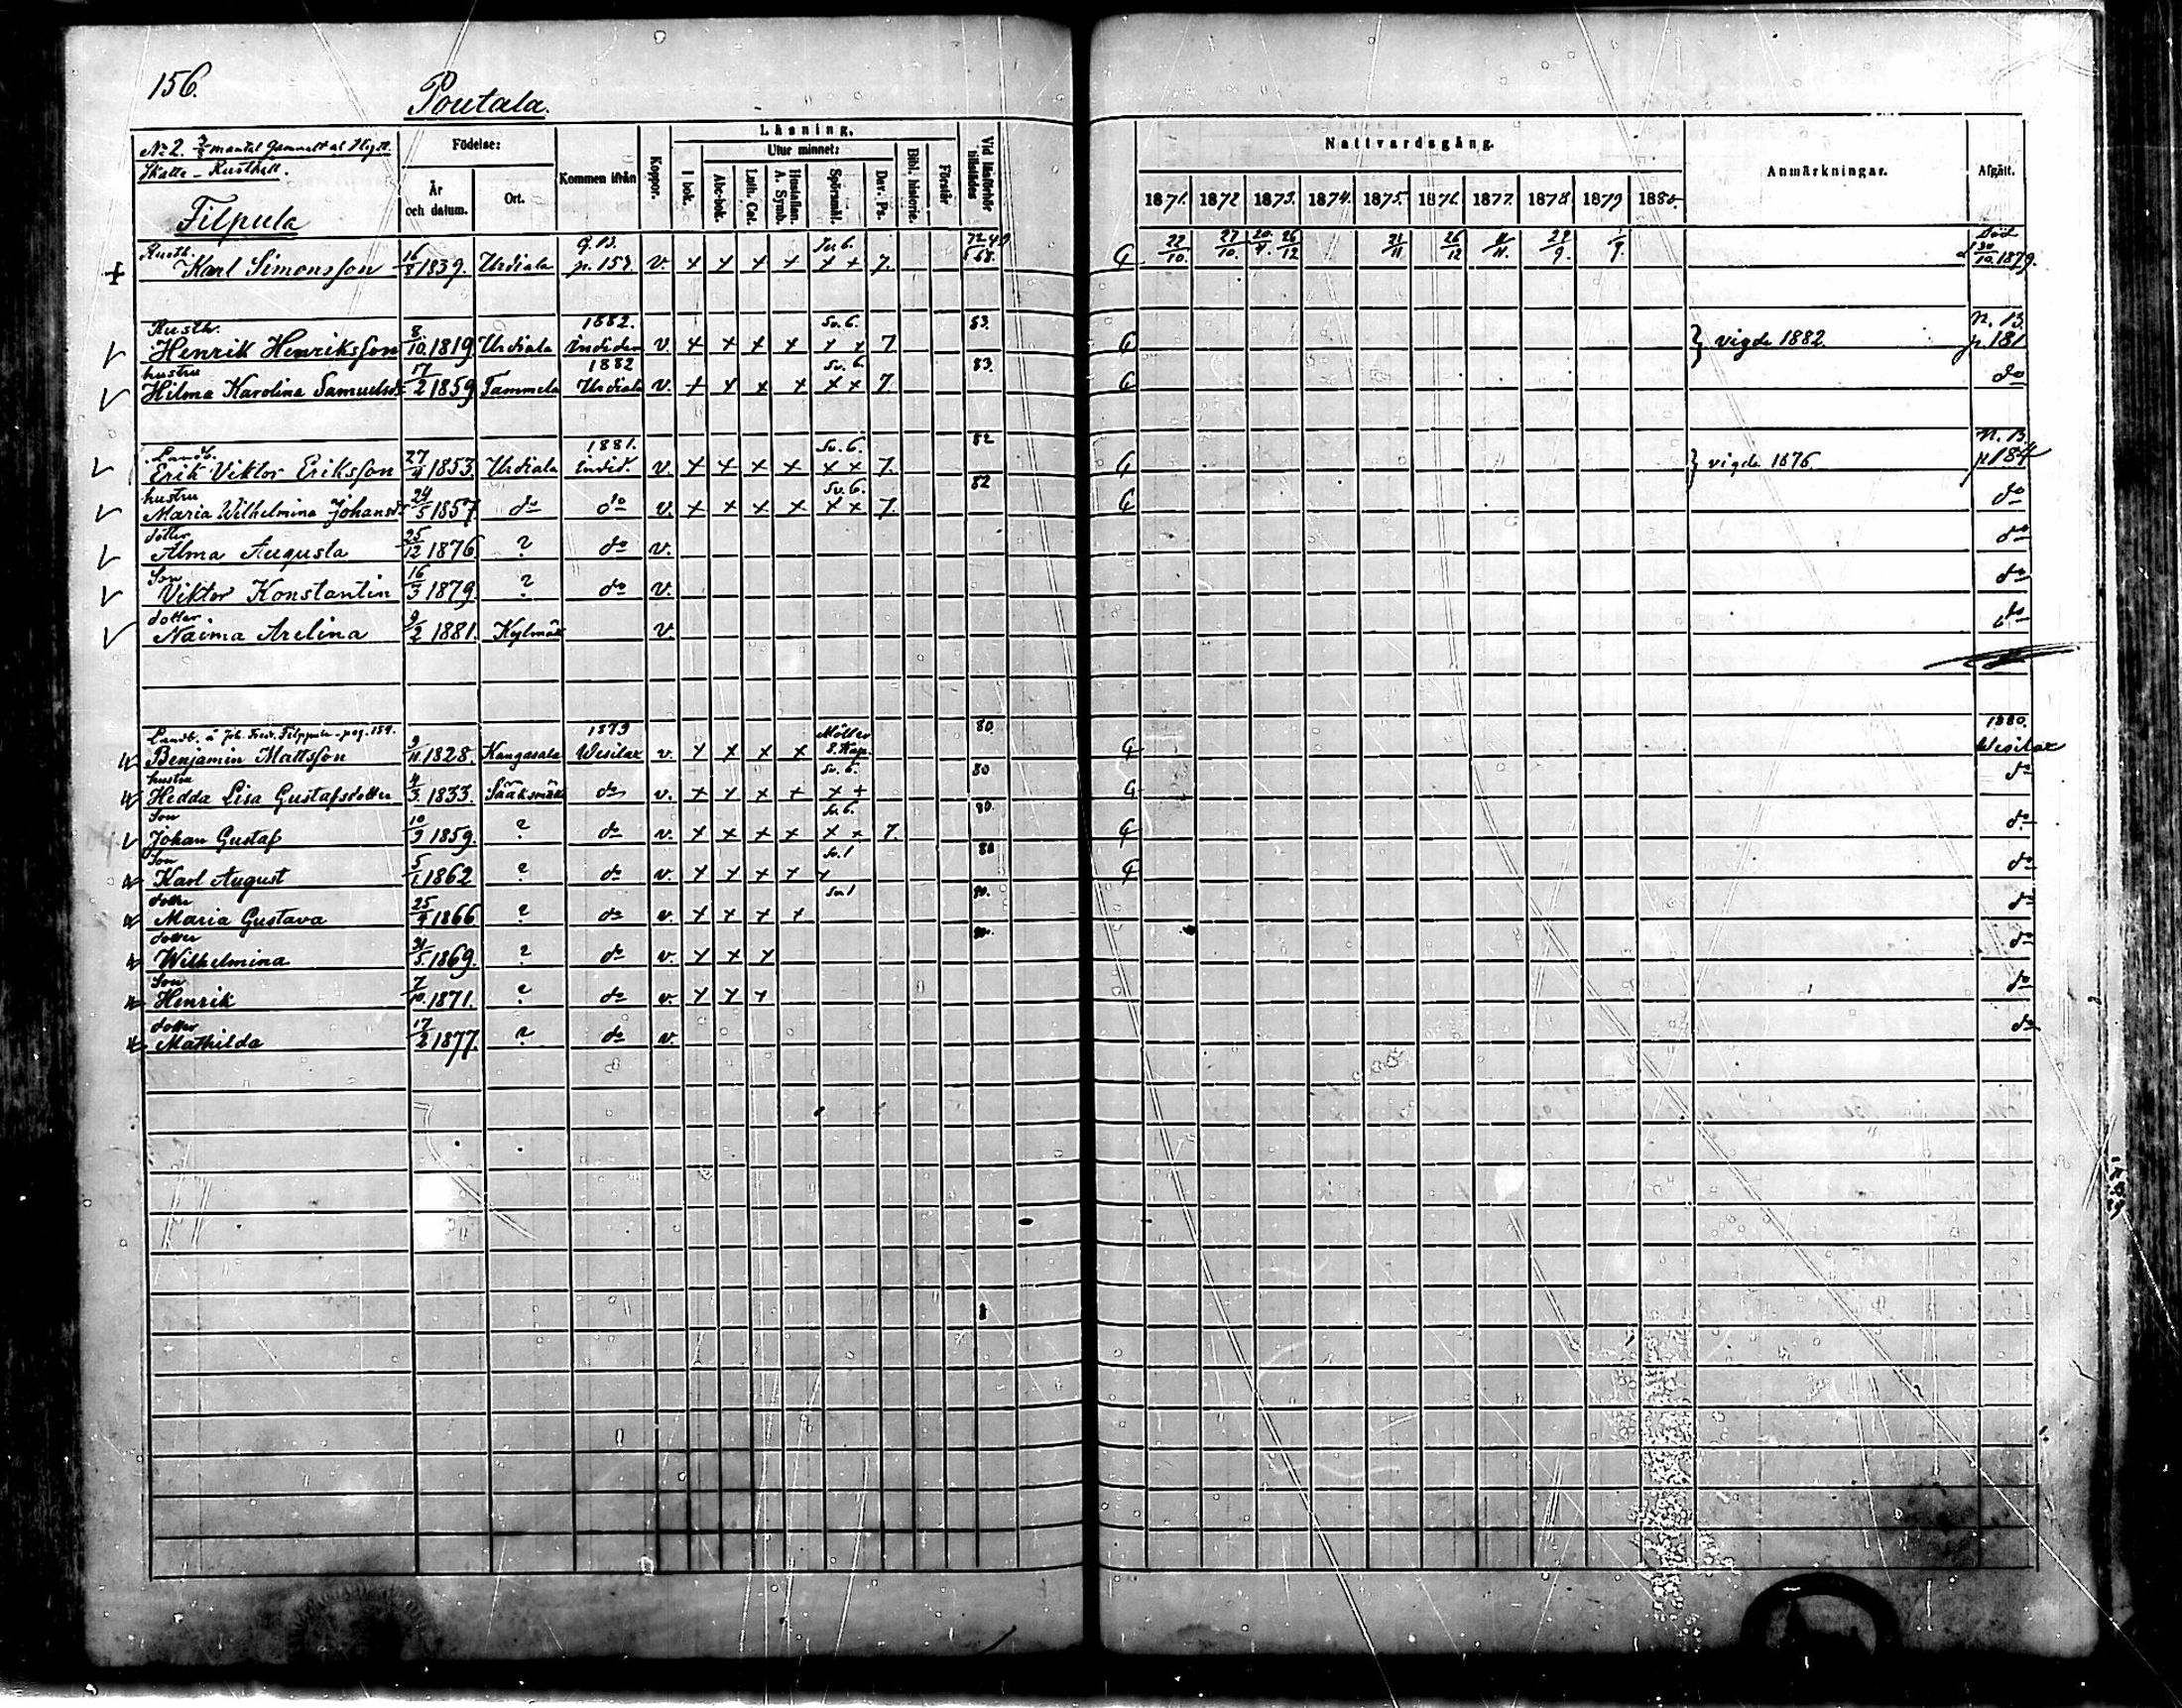 156.
Poutala.
No 2. mantal Gammalt af Flygt.
Skatte-Rusthåll.
Filpula
Födelse:
År och datum.
Ort.
Kommen ifrån
Koppor.
Läsning.
Utur minnet:
I bok.
Abc-bok.
Luth. Cat.
Hustaflan. A. Symb.
Spörsmål.
Dav. Ps.
Bibl. historie.
Förstår
Vid läsförhör tillstädes
Nattvardsgång.
1871. 1872 1873. 1874. 1875. 1876 1877. 1878. 1879 1880.
Anmärkningar.
Afgått.
Rusth. G. B. Sv. 6. Död
Karl Simonsson 16/8 1839. Urdiala p. 157. v. x x x x x x 7. G 22/10. 27/10. 26/12 26/12 29/9. 30/10. 1879.
Rusth. 1882. Sv. 6. 83. N. B.
Henrik Henriksson 8/10 1819 Urdiala Indidem v. x x x x x x 7 G } vigde 1882. p 181
hustru 1882 Sv. 6. 83.
Hilma Karolina Samuelsdr 17/2 1859 Tammela Urdiala v. x x x x x x 7. G do
Landb. 1881. Sv. 6. 82 N. B.
Erik Viktor Eriksson 27/4 1853. Urdiala Indid. v. x x x x x x 7 G } vigde 1876. p 184
hustru Sv. 6. 82
Maria Wilhelmina Johansdr 24/5 1857 do do v. x x x x x x 7 G do
dotter
Alma Augusta 25/12 1876 ? do v. do
Son
Viktor Konstantin 16/3 1879. ? do v. do
dotter
Naima Arelina 9/2 1881. Kylmäk v do
Landb. å Joh. Fred. Filppula - pag. 159. 1879 Möller 80. 1880.
Benjamin Mattsson 9/11 1828. Kangasala Wesilax v. x x x x 8. Kap. G Wesilax
hustru Sv. 6. 80
Hedda Lisa Gustafsdotter 4/3 1833. Sääksmäki do v. x x x x x x G do
Son Sv. 6. 80.
Johan Gustaf 10/9 1859. ? do v. x x x x x x 7. G do
Son Sv. 1 80
Karl August 5/1 1862 ? do v. x x x x x G do
dotter Sv. 1 80.
Maria Gustava 25/4 1866 ? do v. x x x x do
dotter 80.
Wilhelmina 31/5 1869. ? do v. x x x do
Son
Henrik 7/10 1871. ? do v. x x x do
dotter
Mathilda 17/2 1877. ? do v. do